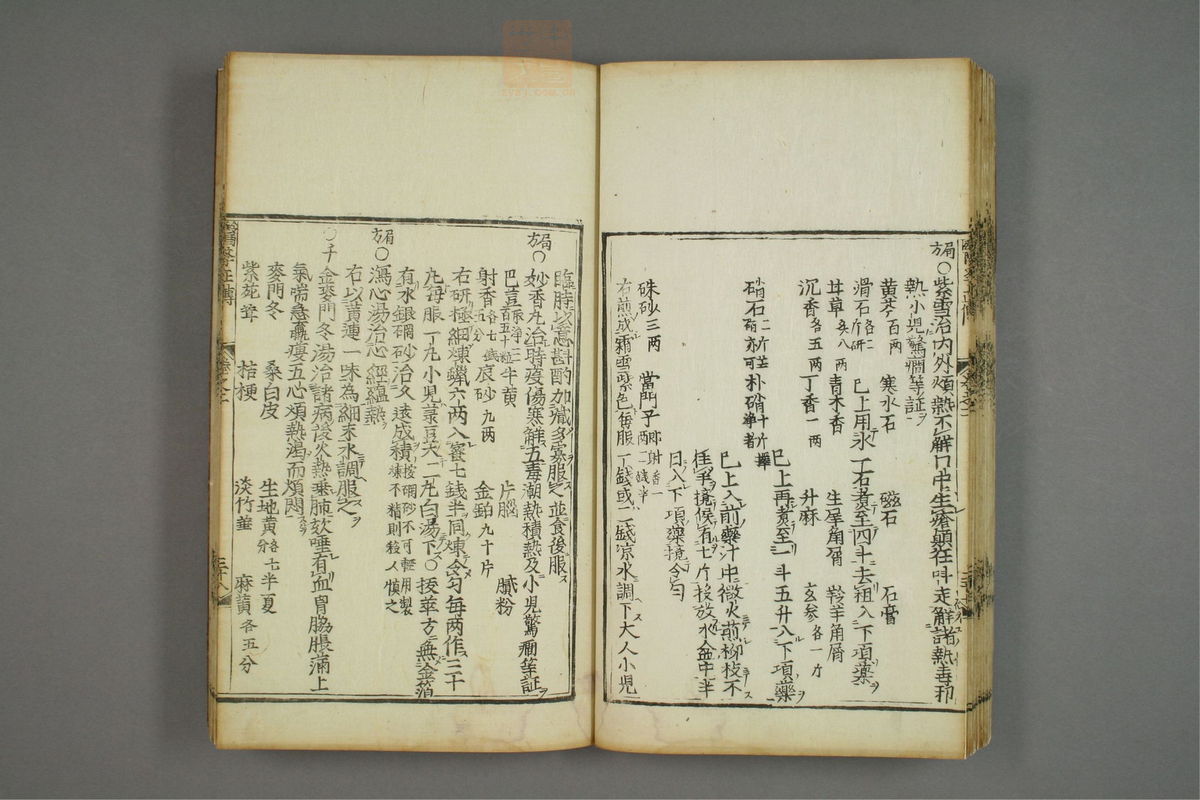 局方○紫雪治內外煩熱不解口中生瘡顛狂呌走解諸熱毒邪
熱小児驚癇等証
黄芩百両 寒水石 磁石 石膏
滑石各二斤研 已上用水一石煮至四斗去粗入下項藥
甘草炙八両 青木香 羚羊角屑
沉香各五両 丁香一両 升麻 玄参各一斤
已上再煮至一斗五升入下項藥
硝石二斤芒硝亦可 朴硝十斤淨者
已上入前藥汁中微火煎柳枝不
住手攪候有七斤投放水盆中半
日入下項藥攪令勻
硃砂三両 當門子即射香一両二錢半
右煎成霜雪紫色毎服一錢或二錢凉水調下大人小児
臨時以意斟酌加減多寡服之並食後服
局方○妙香丸治時疫傷寒觧五毒潮熱積熱及小児驚癇等証
巴豆 牛黄 片腦 膩粉
射香各七錢五分 辰砂九両 金鉑九十片
右研極細煉蠟六両入蜜七錢半同煉令勻毎両作三十
丸毎服一丸小児菉豆大二丸白湯下○按華方無金箔
有水銀硇砂治久遠成積按硇砂不可軽用製煉不精則殺人慎之
局方○瀉心湯治心經蘊熱
右以黄連一味為細末水調服之
○千金麥門冬湯治諸病後火熱乗肺咳唾有血胷脇脹滿上
氣喘急羸痩五心煩熱渴而煩悶
麥門冬 桑白皮 生地黄各七分 半夏
紫苑茸 桔梗 淡竹茹 麻黄各五分